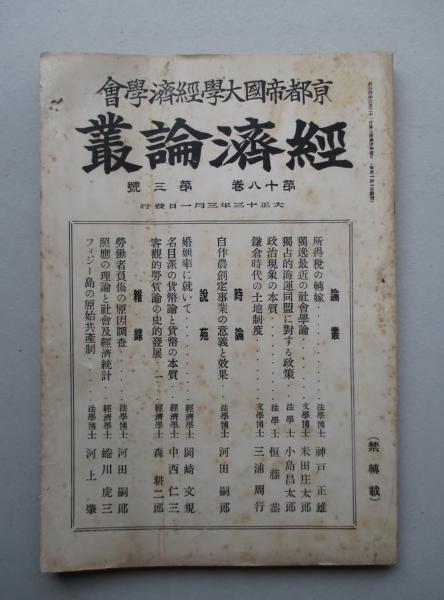 京都帝國大學經濟學會
經濟論叢
第十八卷 第三號
大正十三年三月一日發行
論叢
所得税の轉嫁 法學博士 神戸正雄
獨逸最近の社會學論 文學博士 米田庄太郎
獨占的海運同盟に對する政策 法學士 小島昌太郎
政治現象の本質 法學士 恒藤恭
鎌倉時代の土地制度 文學博士 三浦周行
時論
自作農創定事業の意義と效果 法學博士 河田嗣郎
說苑
婚姻率に就いて 經濟學士 岡崎文規
名目派の貨幣論と貨幣の本質 經濟學士 中西仁三
客觀的勞賃論の史的發展 一 經濟學士 森耕二郎
雜錄
勞働者負傷の原因調査 法學博士 河田嗣郎
照應の理論と社會及經濟統計 經濟學士 蜷川虎三
フィジー島の原始共産制 法學博士 河上肇
(禁轉載)